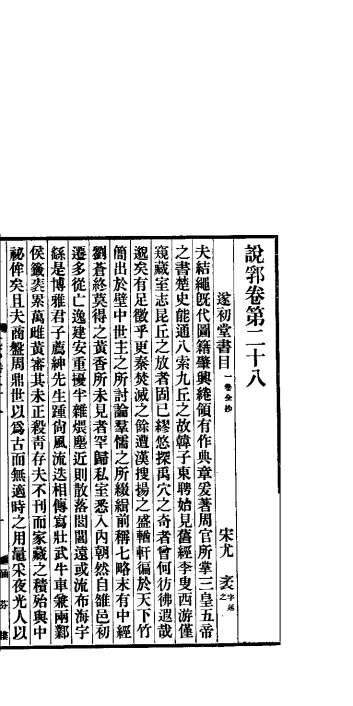 說郛卷第二十八
遂初堂書目 一卷全抄 宋尤 袤 字延之
夫結繩既代圖籍肇興絶領有作典章爰著周官所掌三皇五帝
之書楚史能通八索九丘之故韓子東聘始見舊經李叟西游僅
窺藏室志昆丘之放者固已繆悠探禹穴之奇者曾何彷彿遐哉
邈矣有足徵乎更秦焚滅之餘遭漢搜揚之盛輶軒徧於天下竹
簡出於壁中世主之所討論羣儒之所綴緝前稱七略末有中經
劉蒼終莫得之黃香所未見者罕歸私室悉入內朝然自雒邑初
遷多從亡逸建安重擾半雜煨塵近則散落閭閻遠或流布海宇
繇是博雅君子薦紳先生踵尙風流迭相傳寫壯武牛車兼兩鄴
侯籤袠累萬雌黃審其未正殺青存夫不刊而家藏之積殆與中
祕侔矣且夫商盤周鼎世以爲古而無適時之用鼂采夜光人以
涵芬樓